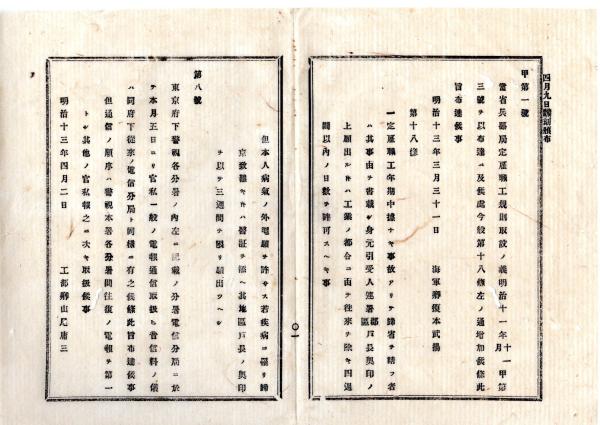 四月九日翻刻頒布
甲第一號
當省兵器局定雇職工規則取設ノ義明治十一年十一月甲第
三號ヲ以布達ニ及候處今般第十八條左ノ通增加候條此
旨布達候事
明治十三年三月三十一日 海軍卿榎本武揚
第十八條
一定雇職工年期中據ナキ事故アリテ歸省ヲ請フ者
ハ其事由ヲ書載シ身元引受人連署郡區戸長奥印ノ
上願出ルトキハ工業ノ都合ニ由テ往來ヲ除キ四週
間以內ノ日數ヲ許可スヘキ事
但本人病氣ノ外追願ヲ許サス若疾病ニ罹リ歸
京致難キトキハ醫証ヲ添ヘ其地區戸長ノ奥印
ヲ以テ三週間ヲ限リ願出ツヘシ
〇一
第八號
東京府下警視各分署ノ內左ニ記載ノ分署電信分局ニ於
テ本月五日ヨリ官私一般ノ電報通信取扱ヒ音信料ノ儀
ハ同府下從來ノ電信分局ト同樣ニ有之候條此旨布達候事
但通信ノ順序ハ警視本署各分署間往復ノ電報ヲ第一
トシ其他ノ官私報之ニ次キ取扱候事
明治十三年四月二日 工部卿山尾庸三